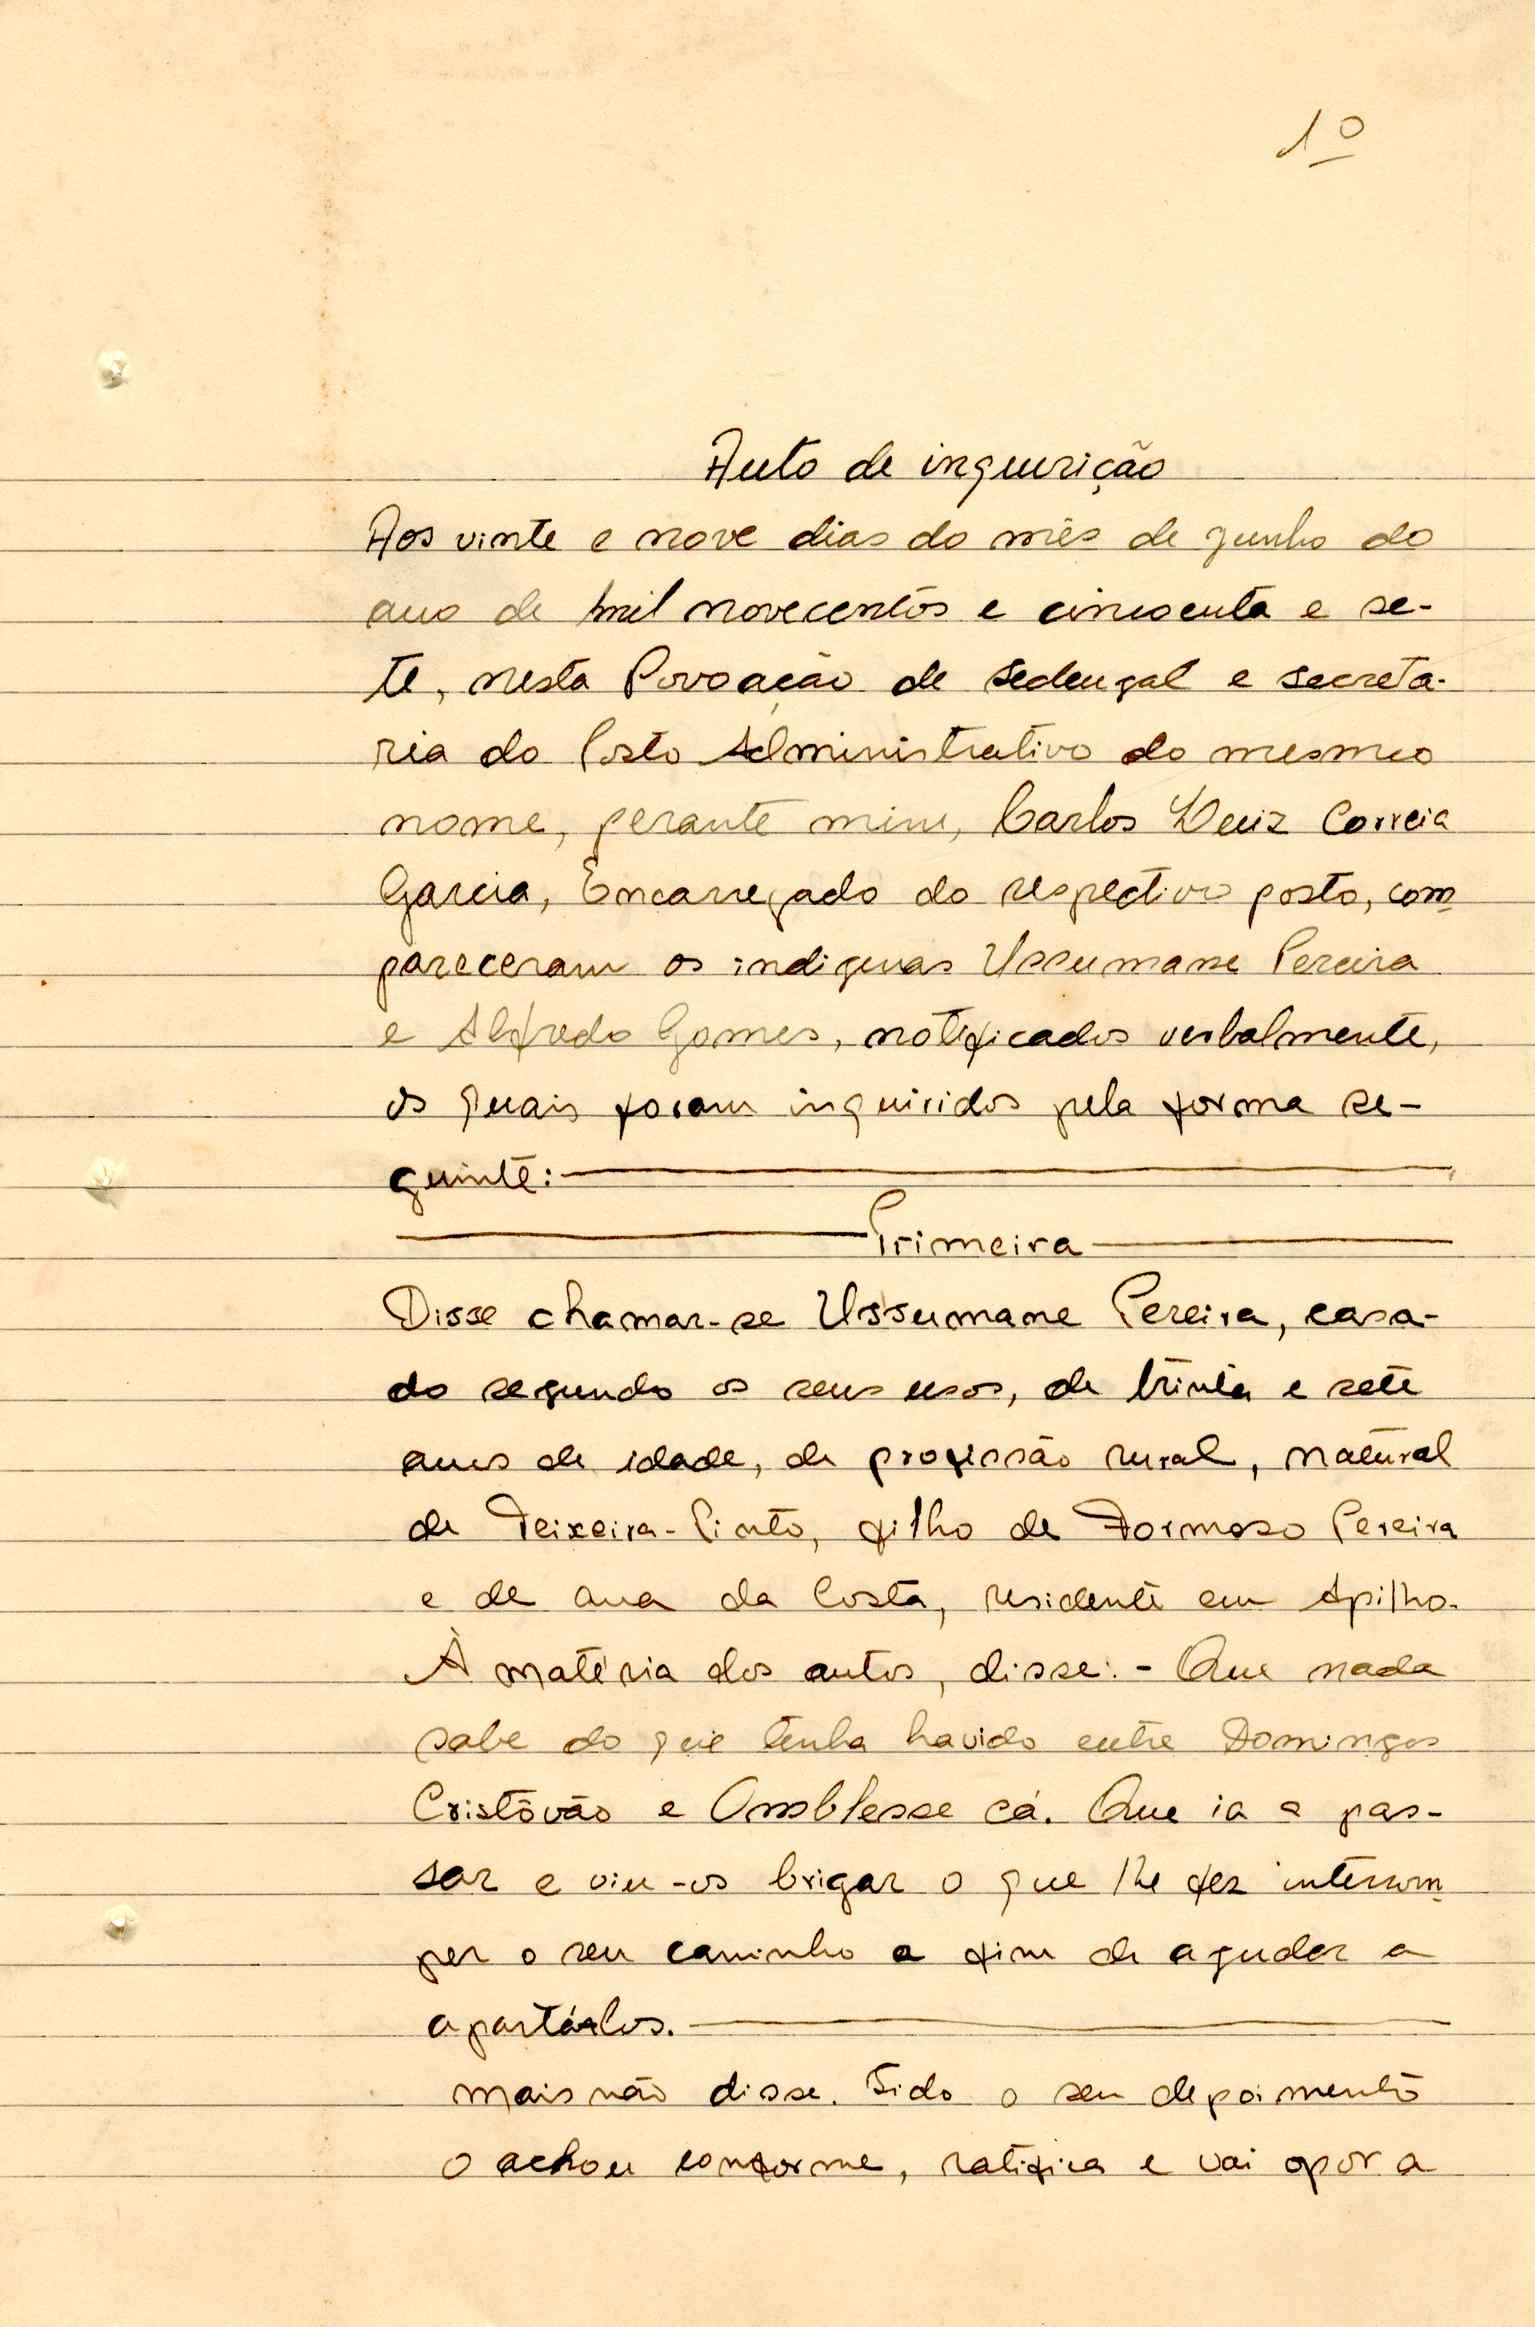 1º
Auto de inquirição
Aos vinte e nove dias do mês de junho do
ano de mil novecentos e cincoenta e se-
te, nesta Povoação de Sedengal e secreta-
ria do Posto Administrativo do mesmo
nome, perante mim, Carlos Luiz Correia
Garcia, Encarregado do respectivo posto, com-
pareceram os indigenas Ussumane Pereira
e Alfredo Gomes, notificados verbalmente,
os quais foram inquiridos pela forma se-
guinte:
Primeira
Disse chamar-se Ussumane Pereira, casa-
do segundo os seus usos, de trinta e sete
anos de idade, de profissão rural, natural
de Teixeira-Pinto, filho de Formoso Pereira
e de Ana da Costa, residente em Apilho.
À matéria dos autos, disse: - Que nada
sabe do que tenha havido entre Domingos
Cristóvão e Cá. Que ia a pas-
sar e viu-os brigar o que lhe fez interrom-
per o seu caminho a fim de ajudar a
apartá-los.
Mais não disse. Lido o seu depoimento
o achou conforme, ratifica e vai opor a